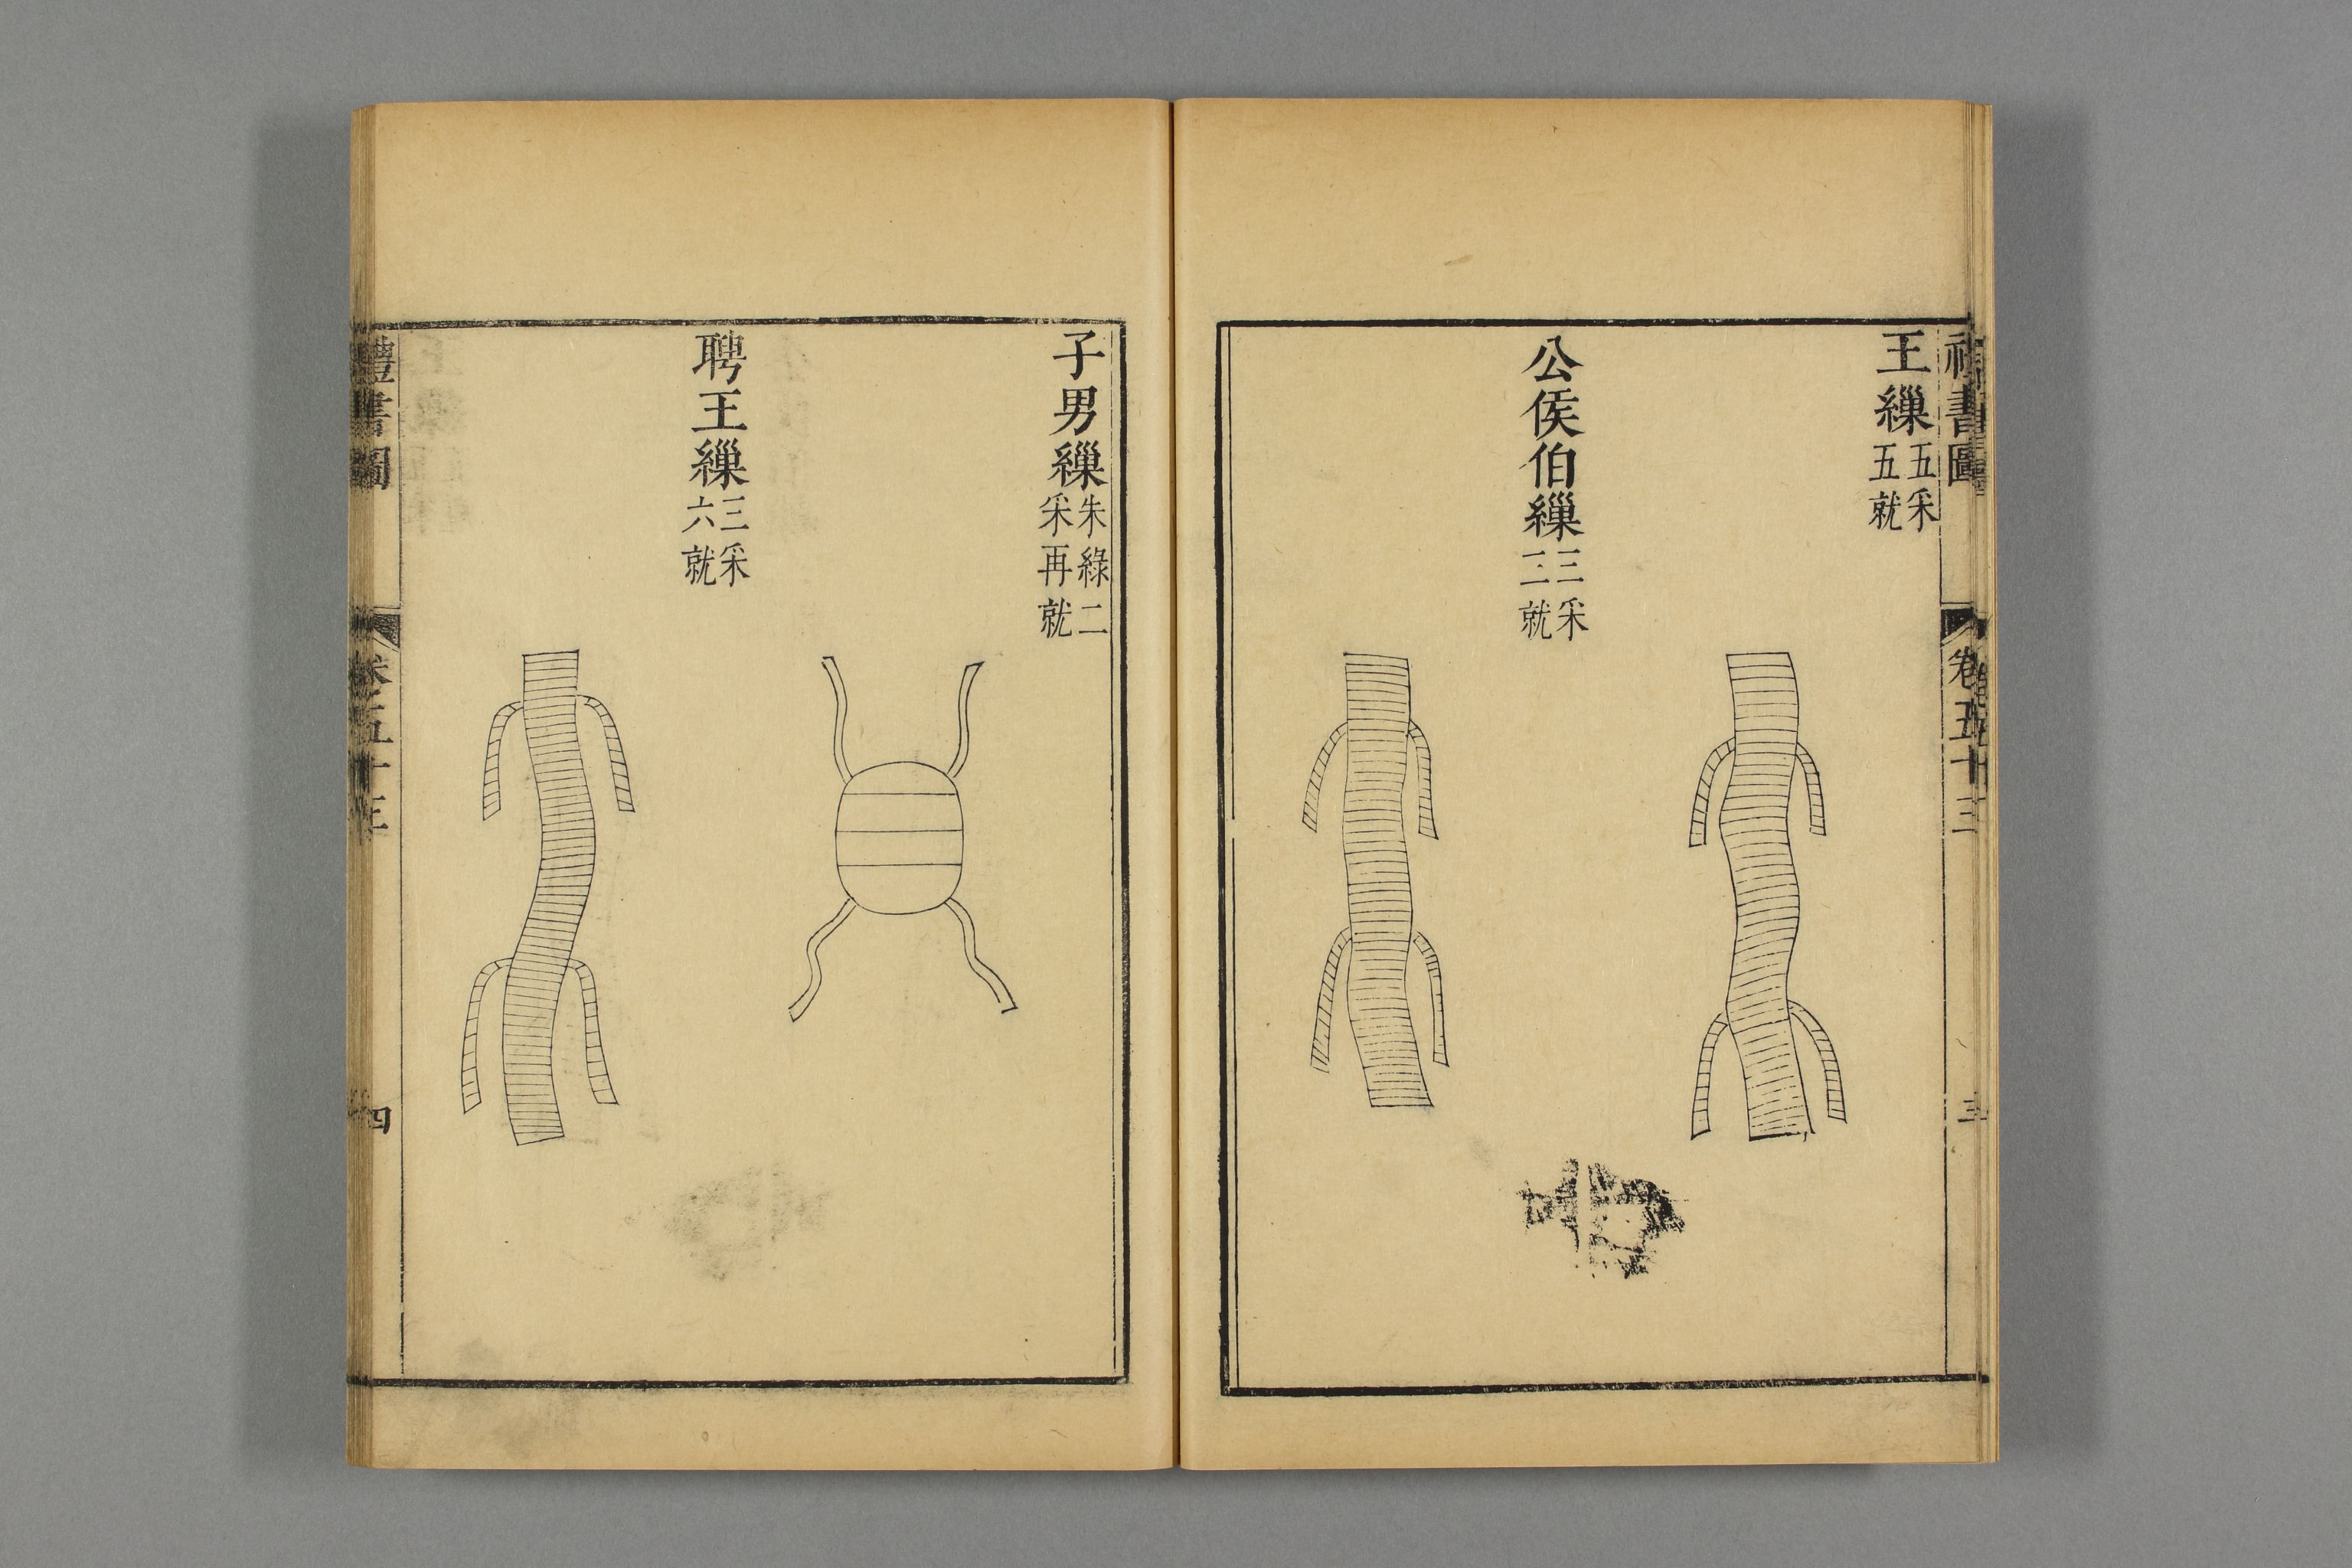 王繅五采五就
公侯伯繅三采三就
子男繅朱綠二采再就
聘王繅三采六就
禮書圖
卷五十三
四